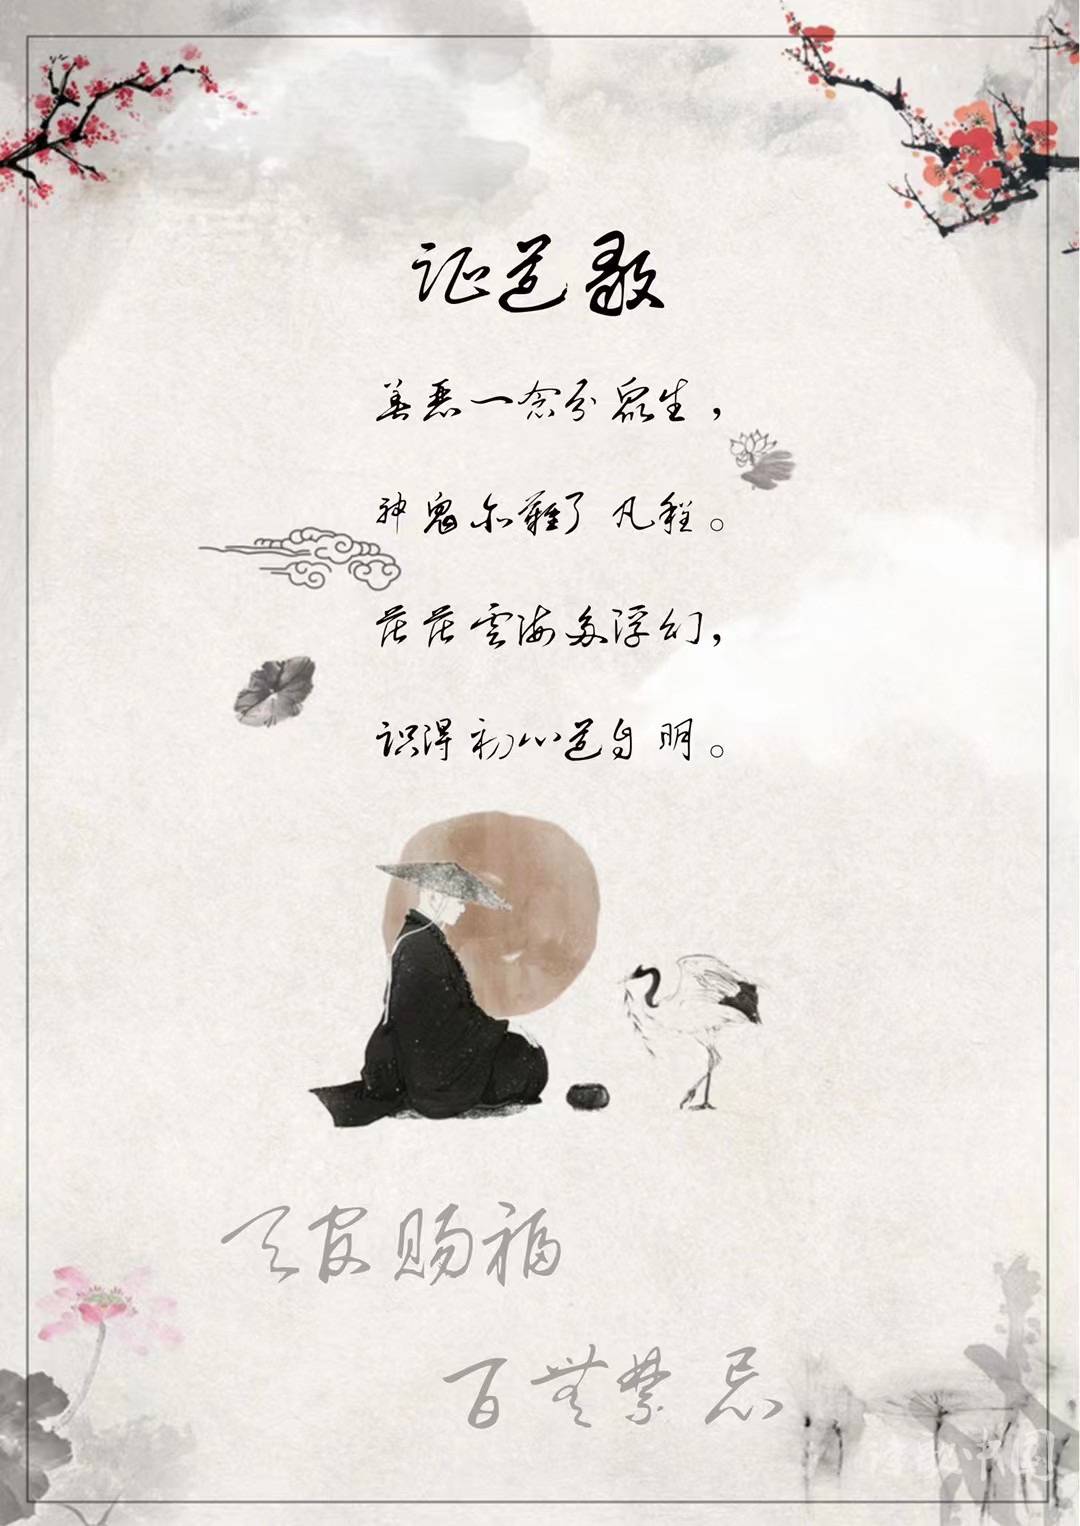 证道歌
善恶一念分眾生，
神鬼亦難了凡程。
茫茫雲海多浮幻，
识得初心道自明。
天官赐福
百無禁忌